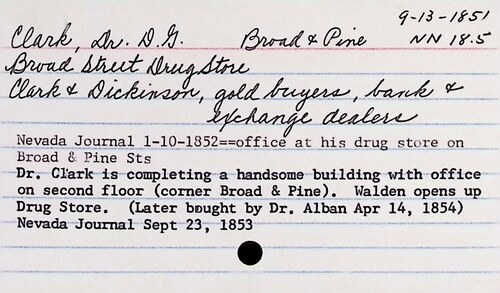 9-13-1851
Clark, Dr. D.G. Broad & Pine NN 18.5
Broad Street Drug Store
Clark & Dickinson, gold buyers, bank &
exchange dealers
Nevada Journal 1-10-1852==office at his drug store on
Broad & Pine Sts
Dr. Clark is completing a handsome building with office
on second floor (corner Broad & Pine). Walden opens up
Drug Store. (Later bought by Dr. Alban Apr 14, 1854)
Nevada Journal Sept 23, 1853